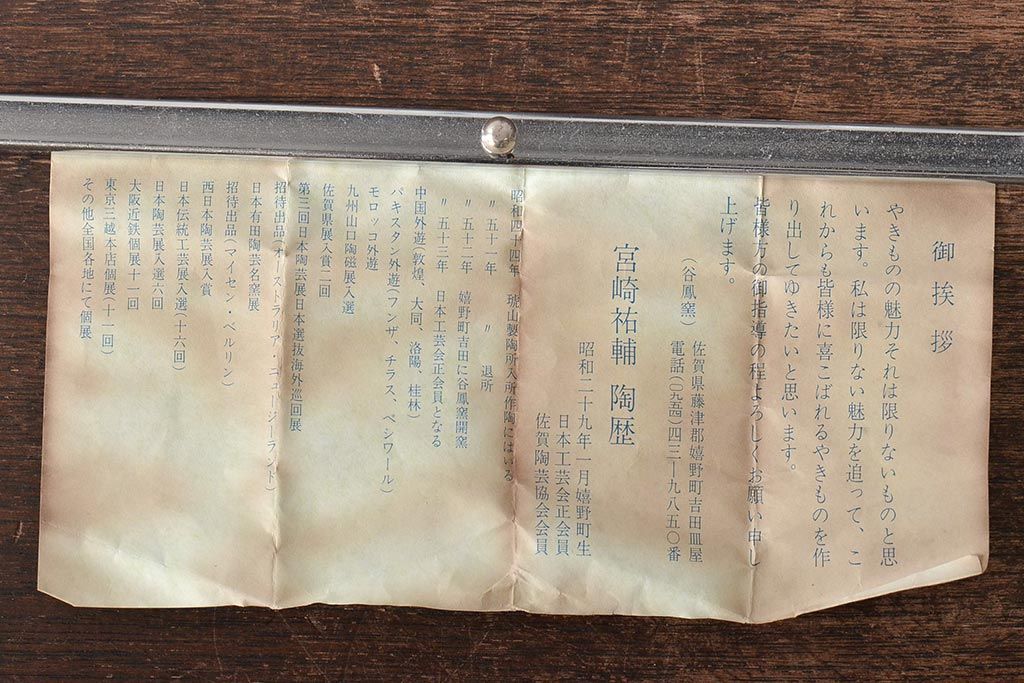 御挨拶
やきものの魅力それは限りないものと思
います。私は限りない魅力を追って、こ
れからも皆様に喜こばれるやきものを作
り出してゆきたいと思います。
皆様方の御指導の程よろしくお願い申し
上げます。
佐賀県藤津郡嬉野町吉田皿屋
(谷鳳窯)
電話(〇九五四)四三―九八五〇番
宮崎祐輔 陶歴
昭和二十九年一月嬉野町生
日本工芸会正会員
佐賀陶芸協会会員
昭和四十四年 琥山製陶所入所作陶にはいる
〃五十一年 〃 退所
〃五十二年 嬉野町吉田に谷鳳窯開窯
〃五十三年 日本工芸会正会員となる
中国外遊(敦煌、大同、洛陽、桂林)
パキスタン外遊(フンザ、チラス、ペシワール)
モロッコ外遊
九州山口陶磁展入選
佐賀県展入賞二回
第三回日本陶芸展日本選抜海外巡回展
招待出品(オーストラリア・ニュージーランド)
日本有田陶芸名窯展
招待出品(マイセン・ベルリン)
西日本陶芸展入賞
日本伝統工芸展入選(十六回)
日本陶芸展入選六回
大阪近鉄個展十一回
東京三越本店個展(十一回)
その他全国各地にて個展